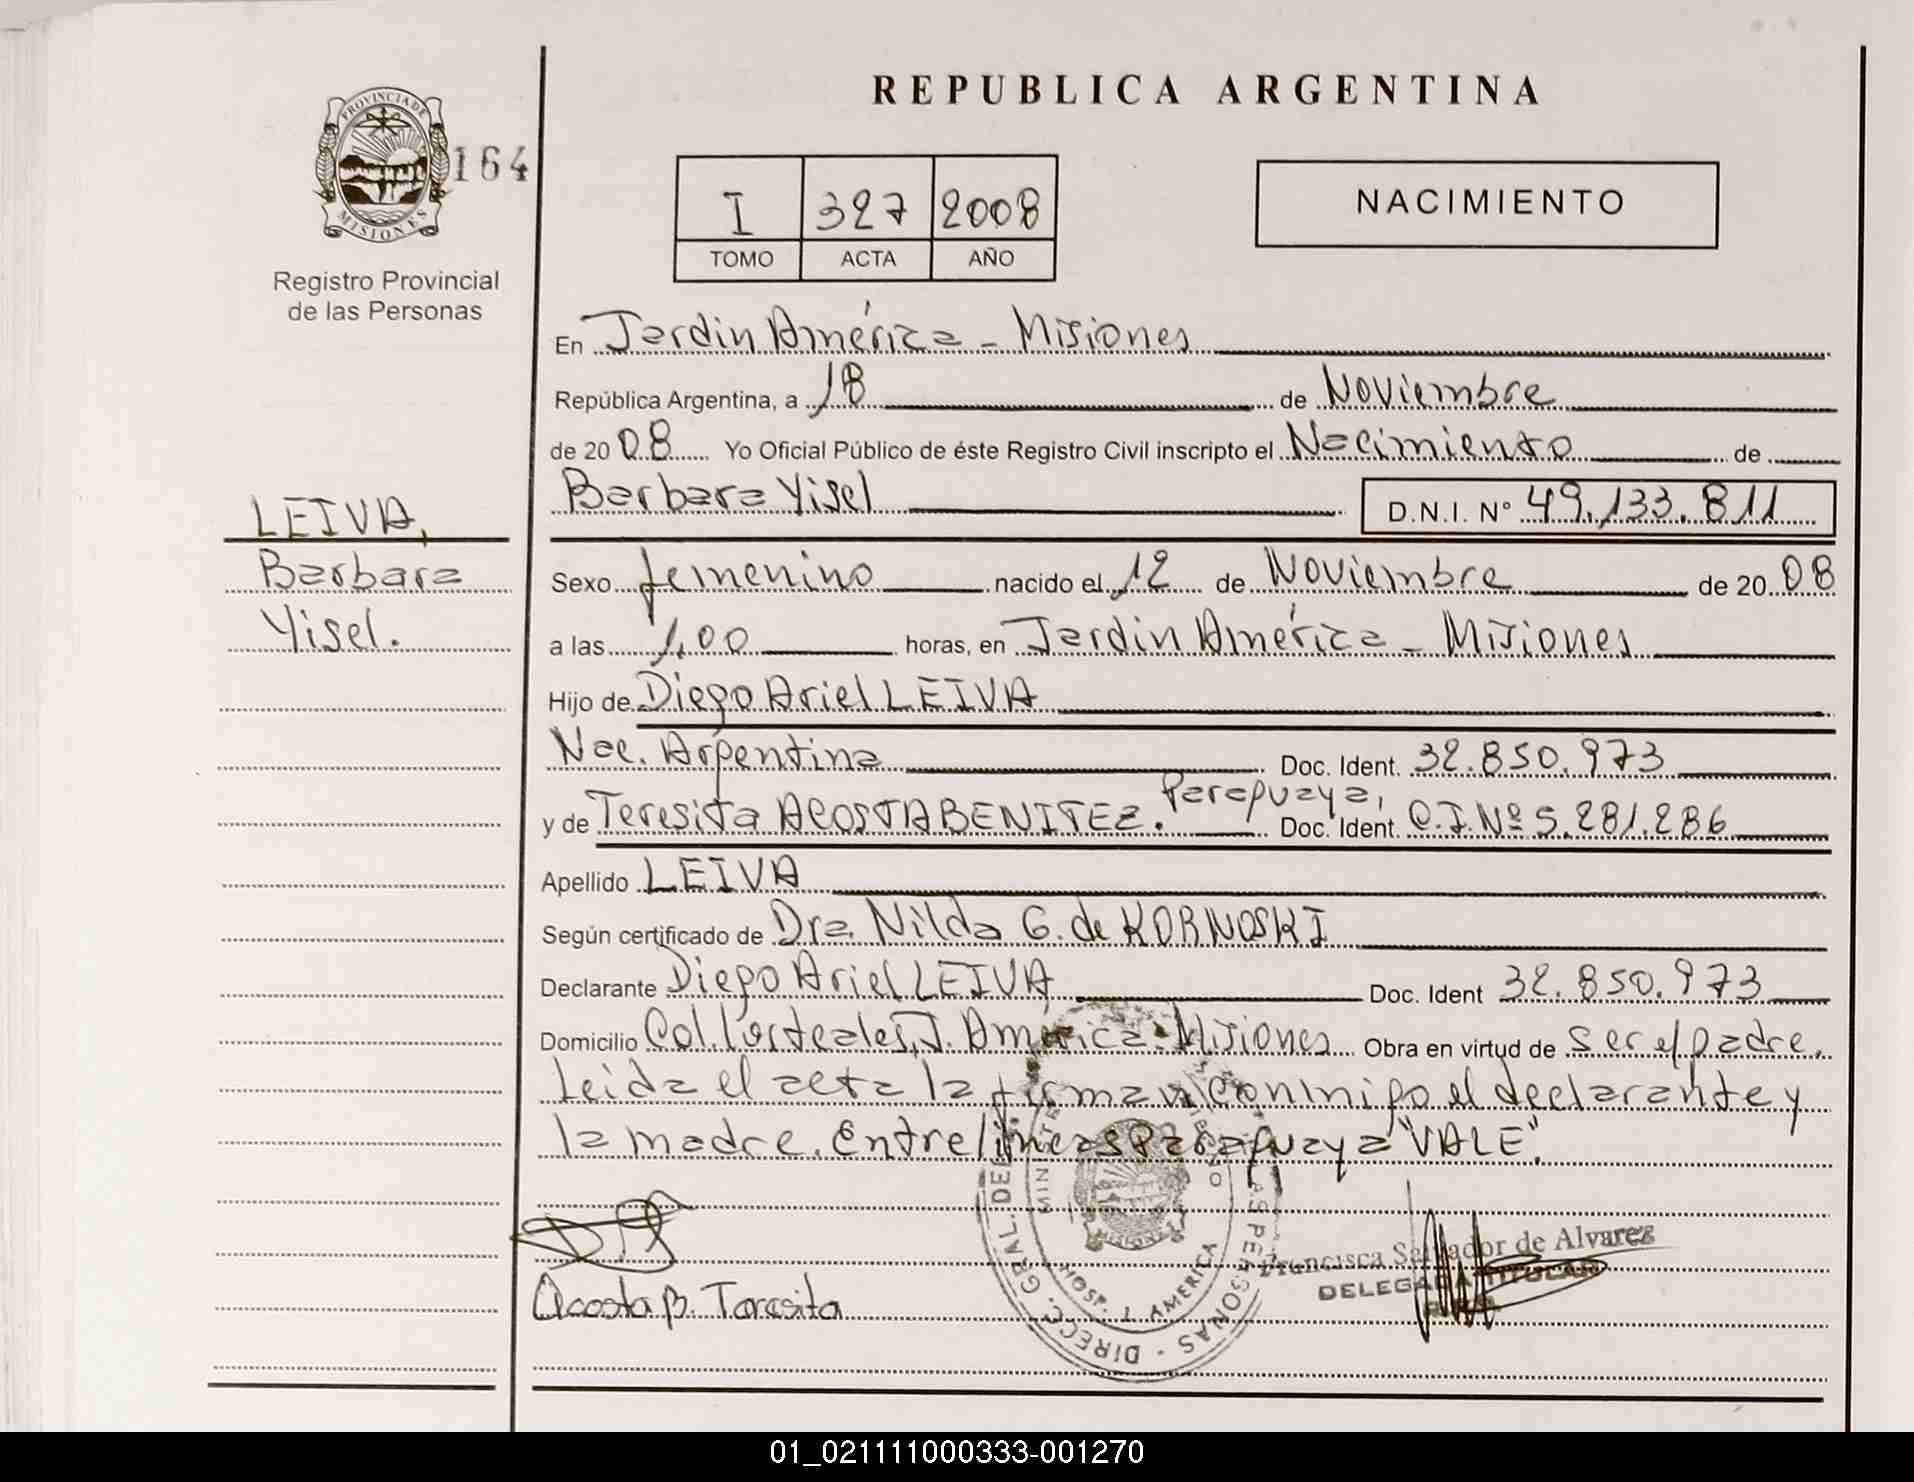 REPUBLICA ARGENTINA
PROVINCIA DE
MISIONES
164
Registro Provincial
de las Personas
I 327 2008
TOMO ACTA AÑO
NACIMIENTO
En Jardin América - Misiones
República Argentina, a 18 de Noviembre
de 2008 Yo Oficial Público de éste Registro Civil inscripto el Nacimiento de
Barbara Yisel D.N.I. N° 49.133.811
LEIVA,
Barbara
Yisel.
Sexo femenino nacido el 12 de Noviembre de 2008
a las 1,00 horas, en Jardin América - Misiones
Hijo de Diego Ariel LEIVA
Nac. Argentina Doc. Ident. 32.850.973
y de Teresita ACOSTA BENITEZ. Paraguaya, Doc. Ident. C.I.Nº 5.281.286
Apellido LEIVA
Según certificado de Dra. Nilda G. de KORNOSKI
Declarante Diego Ariel LEIVA Doc. Ident 32.850.973
Domicilio Col. J. América. Misiones Obra en virtud de ser el padre.
Leida el acta la firman conmigo el declarante y
la madre. Entre lineas Paraguaya "VALE".
Acosta B. Teresita
DIRECC. GRAL. DE LAS PERSONAS
HOSP. J. AMERICA
MISIONES
Francisca Salvador de Alvarez
DELEGADA TITULAR
01_021111000333-001270